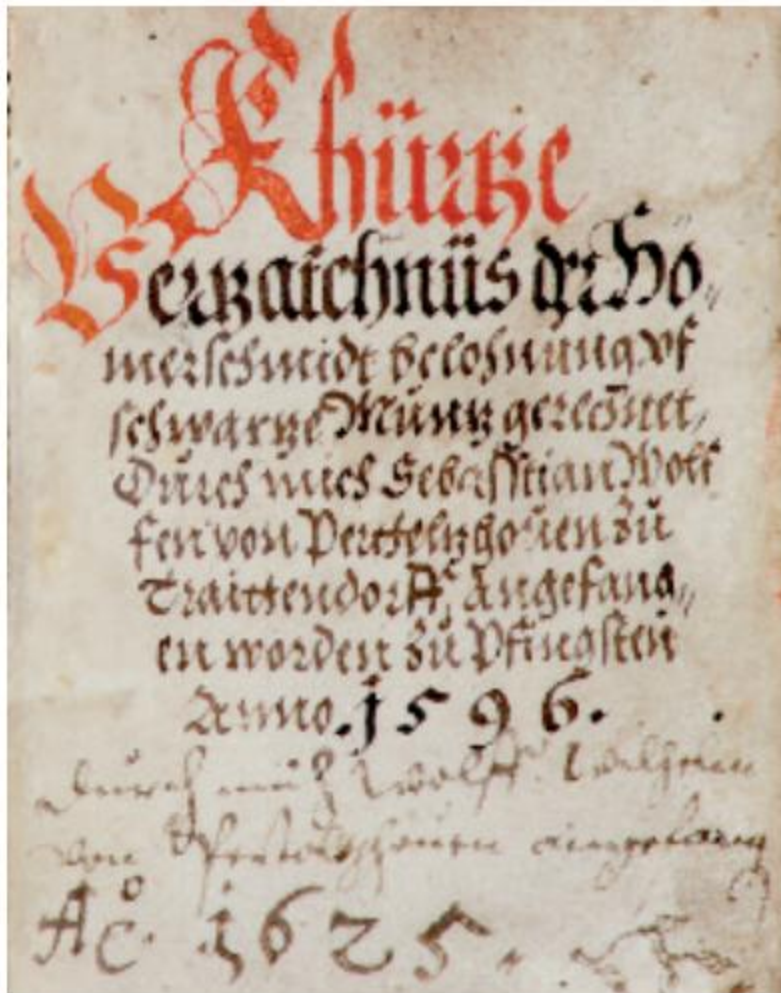 Khürtze
Vertzaichnüs der Ho„
merschmidt belohnung vf
schwartze Müntz gerechnet,
Durch mich Sebasstian Wolf
fen von Pertoltzhouen zu
Traittendorff, angefang„
en worden zu Pfingsten
Anno. 1596.
durch mich Wolff Wilhelm
von
Ao. 1625.